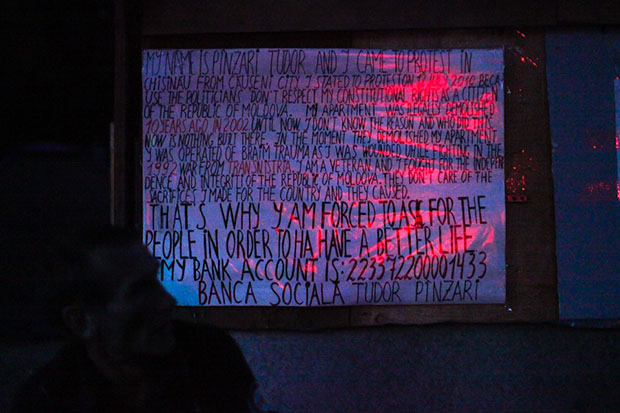 MY NAME IS PINZARI TUDOR AND I CAME TO PROTEST IN
CHISINAU FROM CAUSENI CITY. I STATED TO PROTEST ON 2010 BECA
USE THE POLITICIANS DON'T RESPECT MY CONSTITUTIONAL RIGHTS AS A CITIZEN
OF THE REPUBLIC OF MOLDOVA. MY APARTMENT WAS DEMOLISHED
10 YEARS AGO, IN 2002. UNTIL NOW I DON'T KNOW THE REASON AND WHO DID IT
NOW IS NOTHING BUILT THERE. THE MOMENT THEY DEMOLISHED MY APARTMENT
Y WAS OPERATED OF BRAIN TRAUMA AS I WAS WOUNDED WHILE FIGHTING IN THE
1992 WAR FROM TRANSNISTRIA. Y AM A VETERAN AND I FOUGHT FOR THE INDEPEN
DENCE AND INTEGRITY OF THE REPUBLIC OF MOLDOVA. THEY DON'T CARE OF THE
SACRIFICES I MADE FOR THE COUNTRY AND THEY CAUSED.
THAT'S WHY Y AM FORCED TO ASK FOR THE
PEOPLE IN ORDER TO HA HAVE A BETTER LIFE
MY BANK ACCOUNT IS: 22351220001433
BANCA SOCIALA TUDOR PINZARI